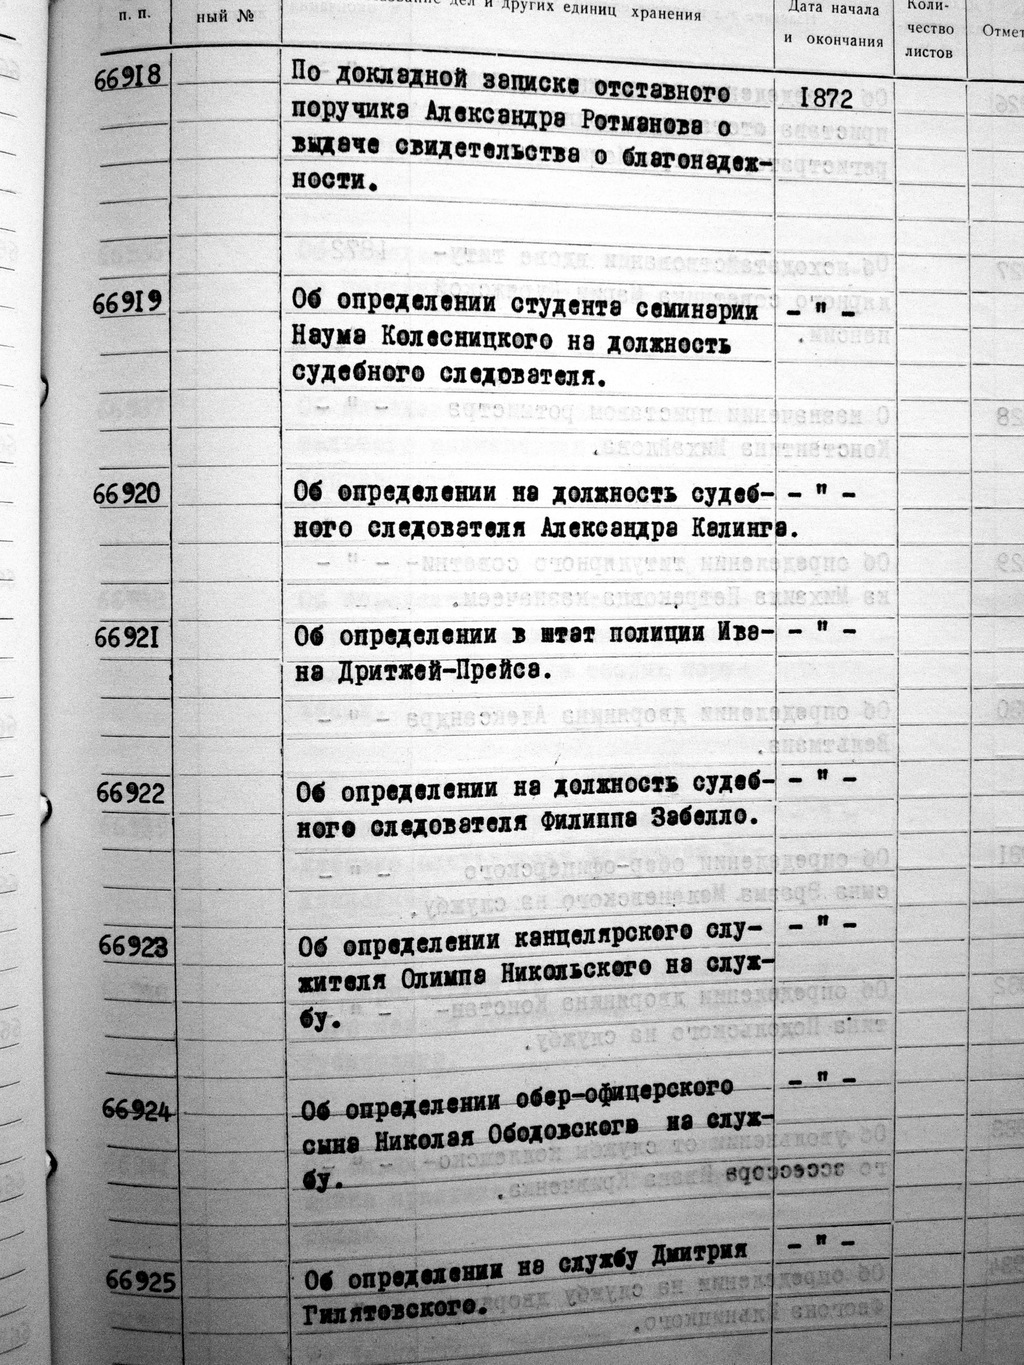 п. п.
ный №
дел и других единиц хранения
Дата начала
и окончания
Коли-
чество
листов
Отмет
66918
По докладной записке отставного
1872
поручика Александра Ротманова о
выдаче свидетельства о благонадеж-
ности.
66919
Об определении студента семинарии
- " -
Наума Колесницкого на должность
судебного следователя.
66920
Об определении на должность судеб-
- " -
ного следователя Александра Калинга.
66921
Об определении в штат полиции Ива-
- " -
на Дритжей-Прейса.
66922
Об определении на должность судеб-
- " -
ного следователя Филиппа Забелло.
66923
Об определении канцелярского слу-
- " -
жителя Олимпа Никольского на служ-
бу.
66924
Об определении обер-офицерского
- " -
сына Николая Ободовского на служ-
бу.
66925
Об определении на службу Дмитрия
- " -
Гилятовского.